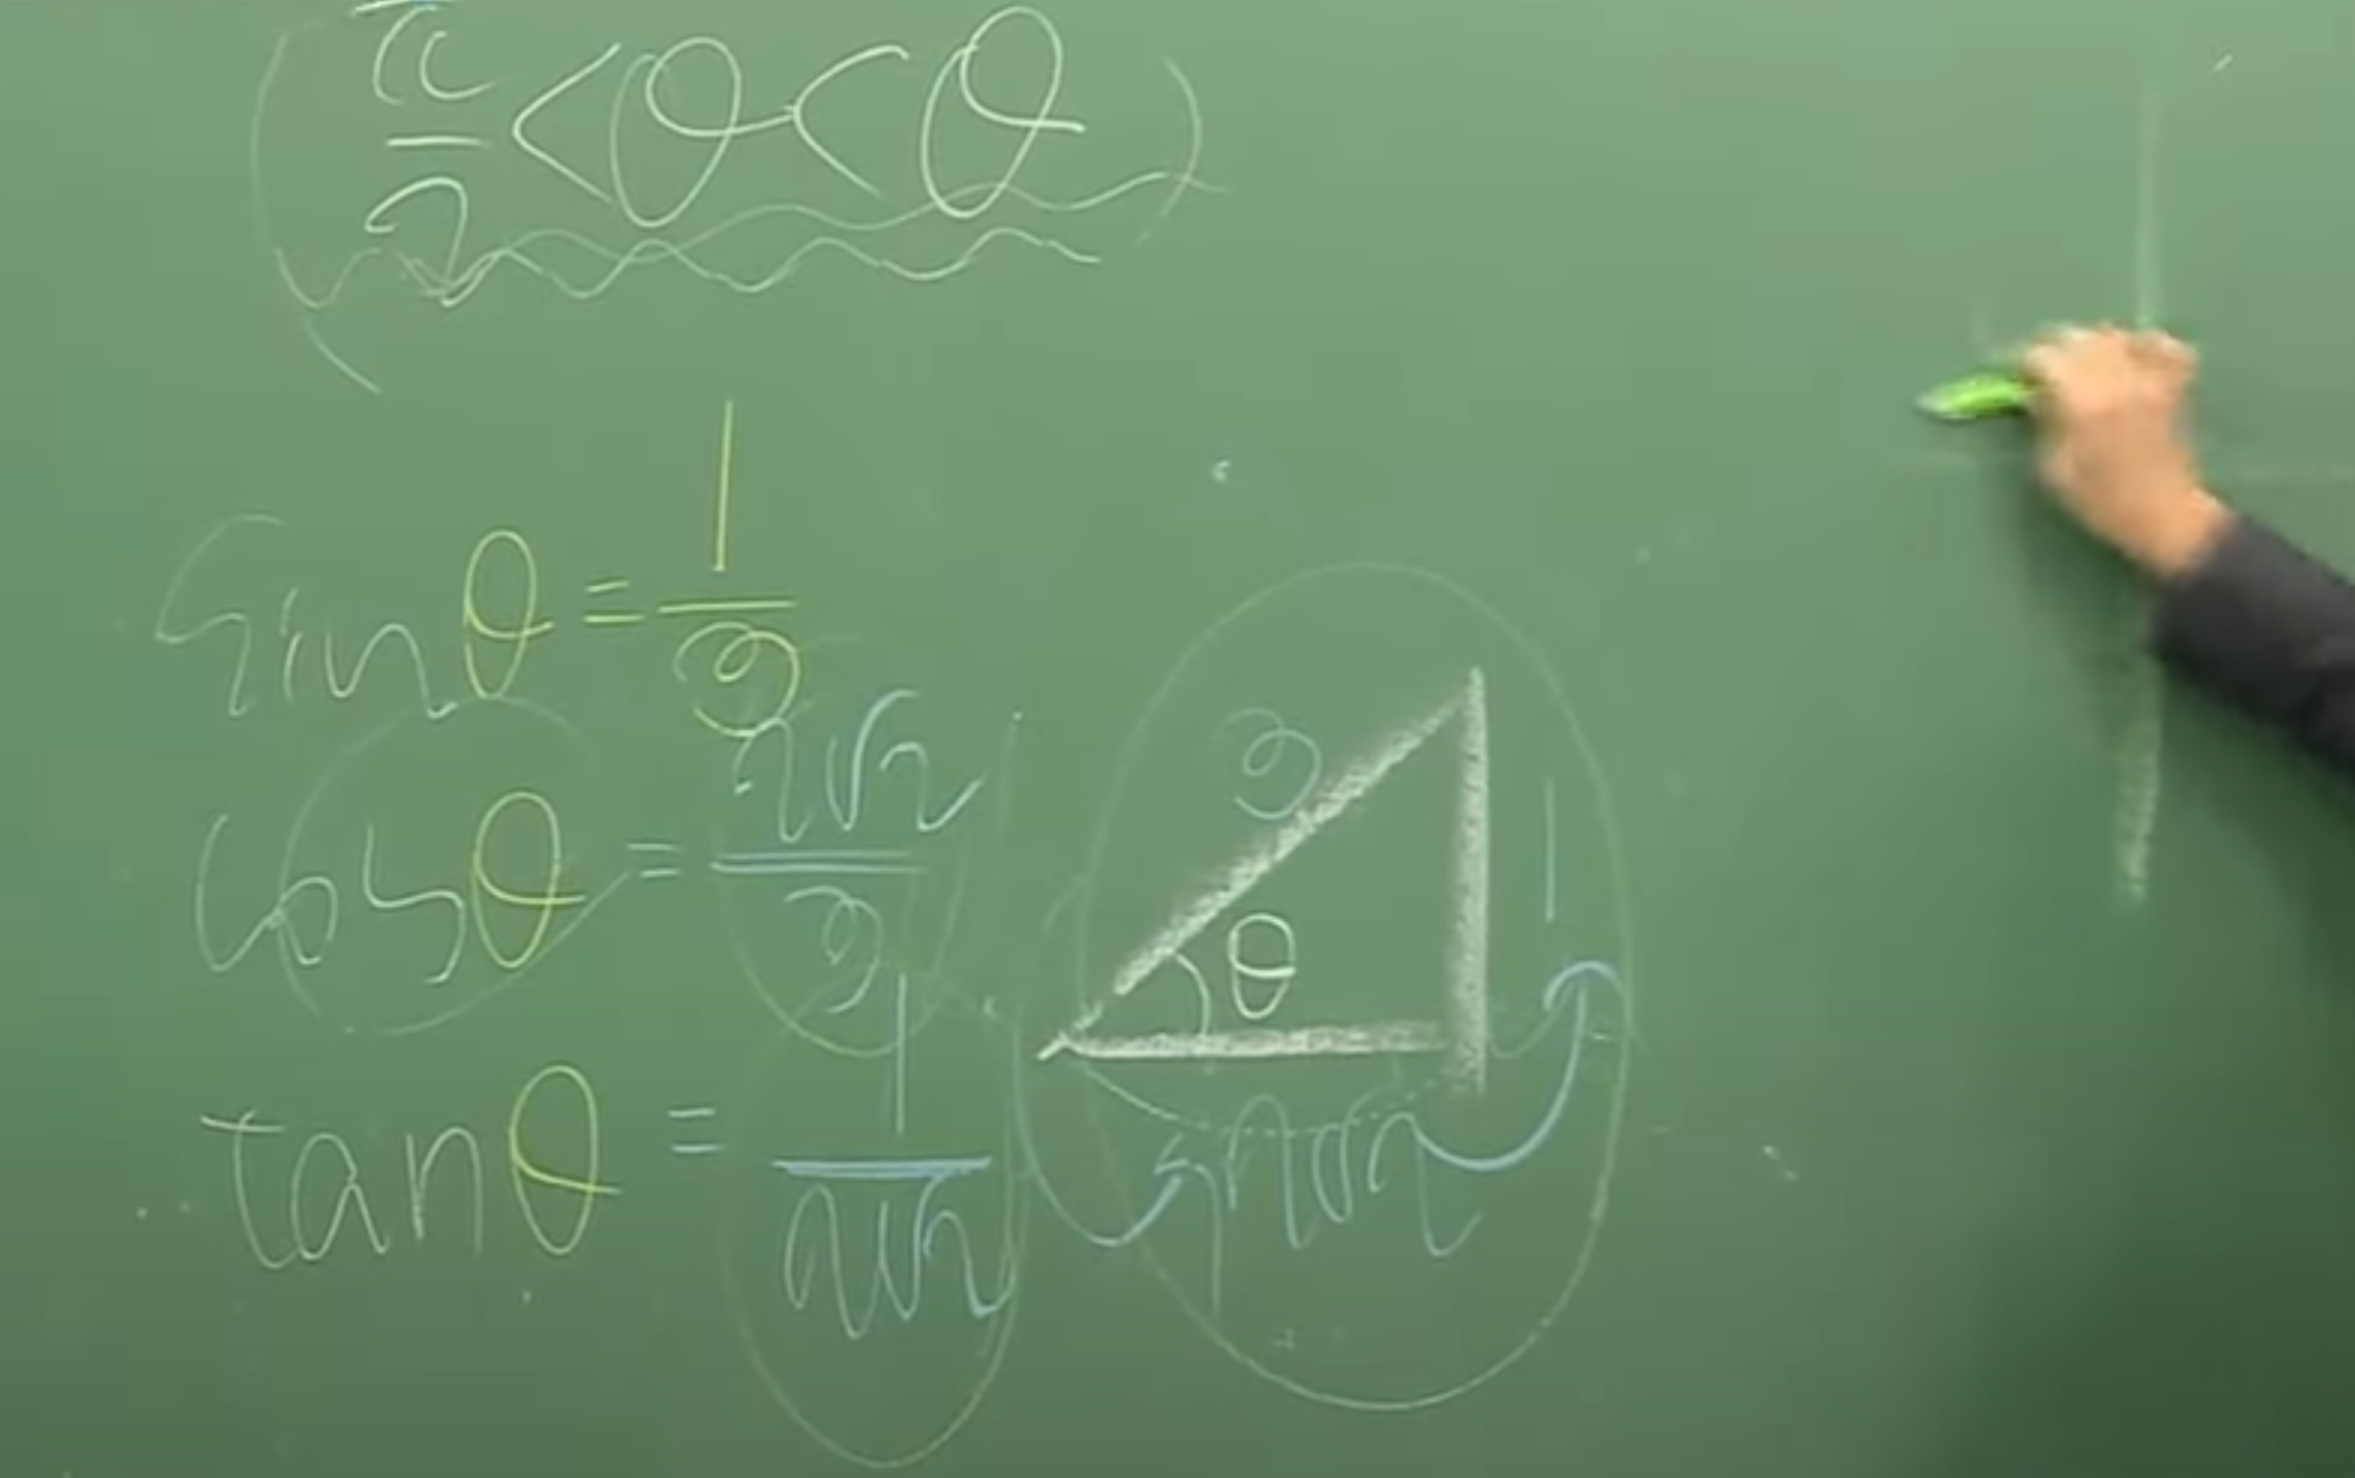 (π/2 < θ < θ)
sinθ = 1/3
cosθ = 2√2/3
tanθ = 1/2√2
3
1
θ
2√2